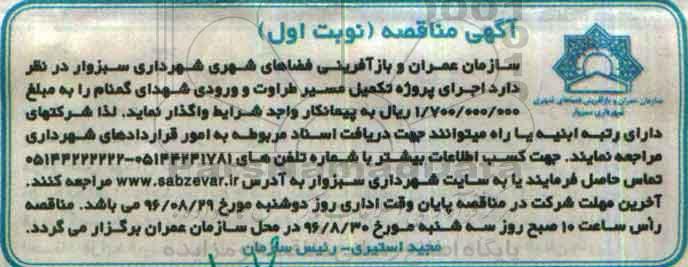 آگهی مناقصه (نوبت اول)
سازمان عمران و بازآفرینی فضاهای شهری شهرداری سبزوار در نظر
دارد اجرای پروژه تکمیل مسیر طراوت و ورودی شهدای گمنام را به مبلغ
۱/۷۰۰/۰۰۰/۰۰۰ ریال به پیمانکار واجد شرایط واگذار نماید. لذا شرکتهای
سازمان عمران و بازآفرینی فضاهای شهری
شهرداری سبزوار
دارای رتبه ابنیه یا راه میتوانند جهت دریافت اسناد مربوطه به امور قراردادهای شهرداری
مراجعه نمایند. جهت کسب اطلاعات بیشتر با شماره تلفن های ۰۵۱۴۴۲۴۱۷۸۱-۰۵۱۴۴۲۲۲۲۲۲
تماس حاصل فرمایند یا به سایت شهرداری سبزوار به آدرس www.sabzevar.ir مراجعه کنند.
آخرین مهلت شرکت در مناقصه پایان وقت اداری روز دوشنبه مورخ ۹۶/۰۸/۲۹ می باشد. مناقصه
رأس ساعت ۱۰ صبح روز سه شنبه مورخ ۹۶/۸/۳۰ در محل سازمان عمران برگزار می گردد.
مجید استیری- رئیس سازمان